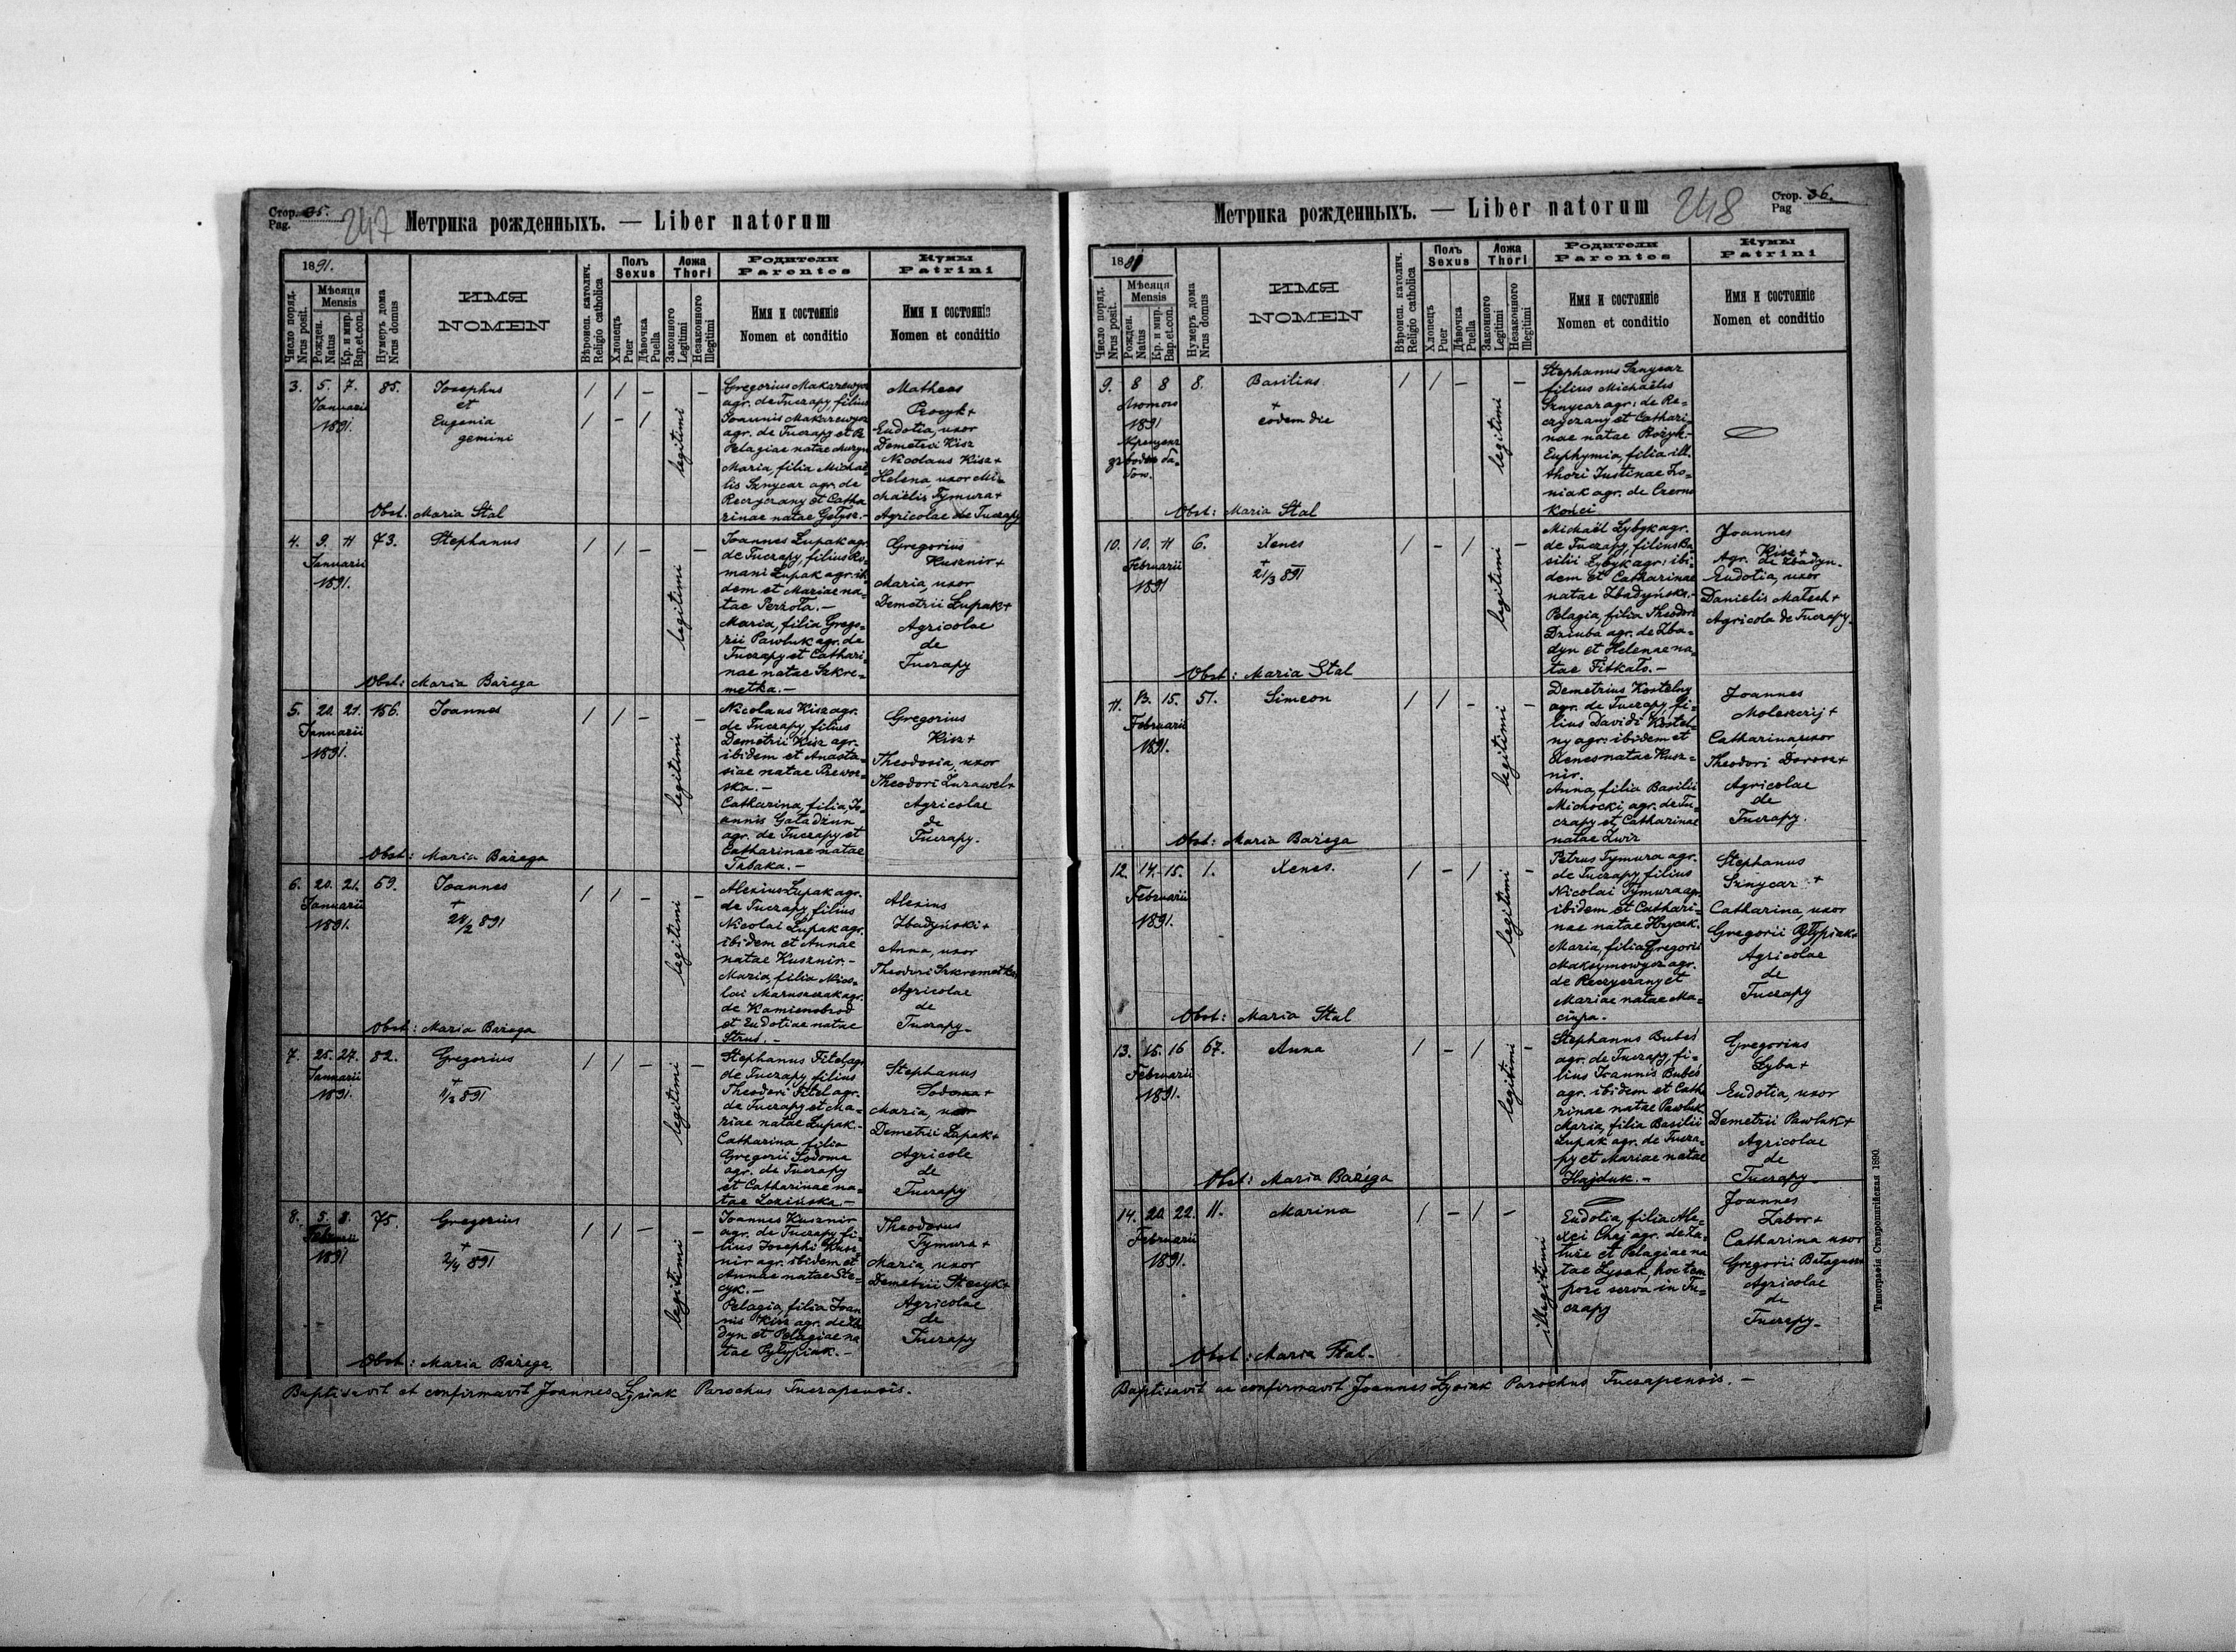 Стор. 35.
Pag.
247
Метрика рожденныхъ. — Liber natorum
1891.
Число поряд.
Nrus posit.
Мѣсяця
Mensis
Рожден.
Natus
Кр. и мир.
Bap.et.con.
Нумеръ дома
Nrus domus
ИМЯ
NOMEN
Вѣроисп. католич.
Religio catholica
Полъ
Sexus
Хлопецъ
Puer
Дѣвочка
Puella
Ложа
Thori
Законного
Legitimi
Незаконного
Illegitimi
Родители
Parentes
Имя и состояніе
Nomen et conditio
Кумы
Patrini
Имя и состояніе
Nomen et conditio
3. 5. 7. 85.
Januarii
1891.
Josephus
et
Eugenia
gemini
/ / –
/ – /
legitimi
–
Gregorius Makarewycz
agr. de Tuczapy, filius
Joannis Makarewycz
agr. de Tuczapy et
Pelagiae natae
Maria, filia Michaë
lis Sznycar agr. de
Reczyczany et Catha
rinae natae Gołysz.–
Matheus
Procyk+
Eudotia, uxor
Demetrii Kisz
Nicolaus Kisz+
Helena, uxor Mi=
chaëlis Tymura+
Agricolae de Tuczapy
Obst. Maria Stal
4. 9. 11 73.
Januarii
1891.
Stephanus
/ / –
legitimi
–
Joannes Łupak agr.
de Tuczapy, filius Ro=
mani Łupak agr. ibi
dem et Mariae na=
tae Perzoła.–
Maria, filia Grego=
rii Pawluk agr. de
Tuczapy et Cathari
nae natae Szkre=
metka.–
Gregorius
Kusznir+
Maria, uxor
Demetrii Łupak+
Agricolae
de
Tuczapy
Obst: Maria Bařega
5. 20. 21. 156.
Januarii
1891.
Joannes
/ / –
legitimi
–
Nicolaus Kisz agr.
de Tuczapy, filius
Demetrii Kisz agr.
ibidem et Anasta=
siae natae Prewor=
ska.–
Catharina, filia Jo=
annis Gaładziun
agr. de Tuczapy et
Catharinae natae
Tabaka.–
Gregorius
Kisz+
Theodosia, uxor
Theodori Żurawel+
Agricolae
de
Tuczapy.
Obst: Maria Bařega
6. 20. 21. 69.
Januarii
1891.
Joannes
+
24/2 891
/ / –
legitimi
–
Alexius Łupak agr.
de Tuczapy, filius
Nicolai Łupak agr.
ibidem et Annae
natae Kusznir.–
Maria, filia Nico=
lai Maruszczak agr.
de Kamienobrod
et Eudotiae natae
Strus.–
Alexius
Zbadyński+
Anna, uxor
Theodori Szkremetka
Agricolae
de
Tuczapy.
Obst: Maria Bařega
7. 25. 27. 82.
Januarii
1891.
Gregorius
+
1/3 891
/ / –
legitimi
–
Stephanus Fitel agr.
de Tuczapy, filius
Theodori Fitel agr.
de Tuczapy et Ma=
riae natae Łupak.–
Catharina filia
Gregorii Sodoma
agr. de Tuczapy
et Catharinae na=
tae Łozińska.–
Stephanus
Sodoma+
Maria, uxor
Demetrii Łapak+
Agricole
de
Tuczapy
8. 5. 8. 75.
Februarii
1891
Gregorius
+
2/4 891
/ / –
legitimi
–
Joannes Kusznir
agr. de Tuczapy, fi=
lius Josephi Kusz=
nir agr. ibidem et
Annae natae Ste=
cyk.–
Pelagia, filia Joan
nis Kisz agr. de Zba
dyn et Pelagiae na
tae Pyłypiak.–
Theodorus
Tymura+
Maria, uxor
Demetrii Stecyk+
Agricolae
de
Tuczapy
Obst: Maria Bařega
Baptisavit et confirmavit Joannes Łysiak Parochus Tuczapensis.
Стор. 36.
Pag
248
Метрика рожденныхъ. — Liber natorum
1891
Число поряд.
Nrus posit.
Мѣсяця
Mensis
Рожден.
Natus
Кр. и мир.
Bap.et.con.
Нумеръ дома
Nrus domus
ИМЯ
NOMEN
Вѣроисп. католич.
Religio catholica
Полъ
Sexus
Хлопецъ
Puer
Дѣвочка
Puella
Ложа
Thori
Законного
Legitimi
Незаконного
Illegitimi
Родители
Parentes
Имя и состояніе
Nomen et conditio
Кумы
Patrini
Имя и состояніе
Nomen et conditio
9. 8 8 8.
1891
Basilius
+
eodem die
/ / –
legitimi
–
Stephanus Sznycar
filius Michaëlis
Sznycar agr: de Re=
czyczany et Cathari=
nae natae Rożyk.–
Euphymia, filia ill.
thori Justinae Zo=
niak agr. de Czerno
końci
Obst: Maria Stal
10. 10. 11 6.
Februarii
1891
Xenes
+
21/3 891
/ – /
legitimi
–
Michaël Łybyk agr.
de Tuczapy, filius Ba
silii Łybyk agr: ibi=
dem et Catharinae
natae Zbadyńska.–
Pelagia, filia Theodori
Dziuba agr. de Zba=
dyn et Helenae na=
tae Fitkało.–
Joannes
Kisz+
Agr. de Zbadyn.
Eudotia, uxor
Danielis Matsch+
Agricola de Tuczapy.
Obst: Maria Stal
11. 13. 15. 51.
Februarii
1891.
Simeon
/ / –
legitimi
–
Demetrius Kostelny
agr. de Tuczapy, fi=
lius Davidi Kostel=
ny agr: ibidem et
Xenes natae Kusz=
nir.
Anna, filia Basilii
Michocki, agr. de Tu=
czapy et Catharinae
natae Zwir
Joannes
Moleszczij+
Catharina, uxor
Theodori Dorosz+
Agricolae
de
Tuczapy.
Obst: Maria Bařega
12. 14. 15. 1.
Februarii
1891.
Xenes.
/ – /
legitimi
–
Petrus Tymura agr.
de Tuczapy, filius
Nicolai Tymura agr.
ibidem et Cathari=
nae natae Hrycak.
Maria, filia Gregorii
Maksymowycz agr.
de Reczyczany et
Mariae natae Ma=
ciupa.
Stephanus
Sznycar +
Catharina, uxor
Gregorii Pyłypiak+
Agricolae
de
Tuczapy
Obst: Maria Stal
13. 15. 16 67.
Februarii
1891.
Anna
/ – /
legitimi
–
Stephanus Bubeś
agr. de Tuczapy, fi=
lius Joannis Bubeś
agr. ibidem et Catha
rinae natae Pawluk
Maria, filia Basilii
Łupak agr. de Tucza=
py et Mariae natae
Hajduk.–
Gregorius
Łyba+
Eudotia, uxor
Demetrii Pawluk+
Agricolae
de
Tuczapy
Obst: Maria Bařega
14. 20. 22. 11.
Februarii
1891.
Marina
/ – / –
illegitimi
Eudotia, filia Ale=
xei Chaj agr. de Za=
tuże et Pelagiae na
tae Łysak, hoc tem
pore serva in Tu=
czapy
Joannes
Zabor+
Catharina uxor
Gregorii
Agricolae
de
Tuczapy.
Obst: Maria Stal.
Baptisavit ac confirmavit Joannes Łysiak Parochus Tuczapensis.–
Типографія Ставропигійская 1890.